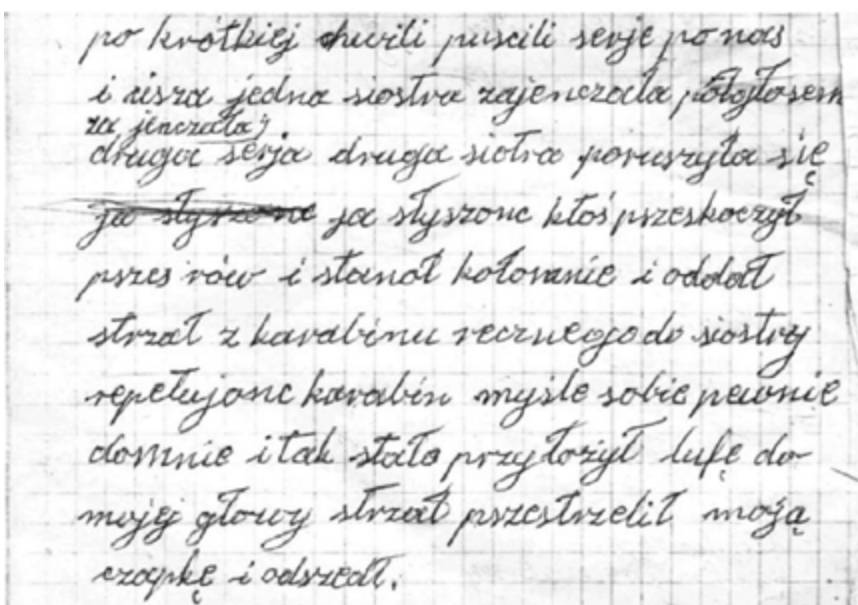 po krótkiej chwili puscili serje po nas
i cisza jedna siostra zajenczała półgłosem
za jenczała)
druga serja druga siotra poruszyła się
ja słyszonc ja słyszonc ktoś pszeskoczył
pszes rów i stanoł kołomnie i oddał
strzał z karabinu recznego do siostry
repetujonc karabin myśle sobie pewnie
domnie i tak stało przyłożył lufę do
mojej głowy strzał pszestrzelił moją
czapkę i odszedł.